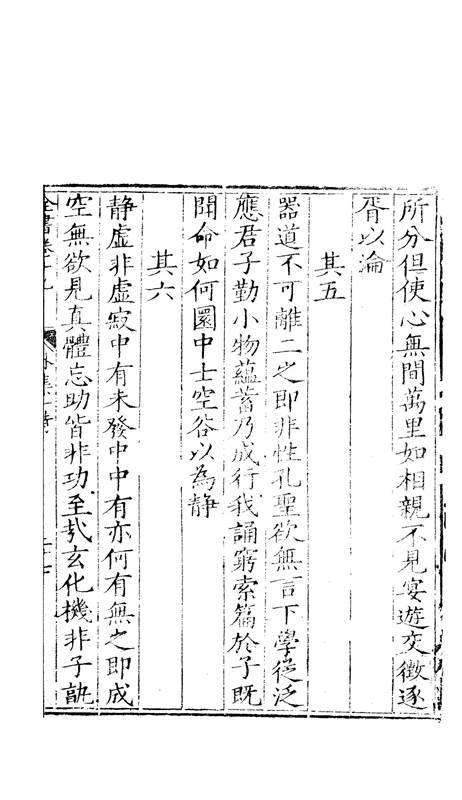 所分但使心無間萬里如相親不見宴遊交徵逐
胥以淪
其五
器道不可離二之即非性孔聖欲無言下學從泛
應君子勤小物蘊蓄乃成行我誦窮索篇於子既
聞命如何圜中士空谷以為靜
其六
靜虛非虛寂中有未發中中有亦何有無之即成
空無欲見真體忘助皆非功至㢤玄化機非子孰